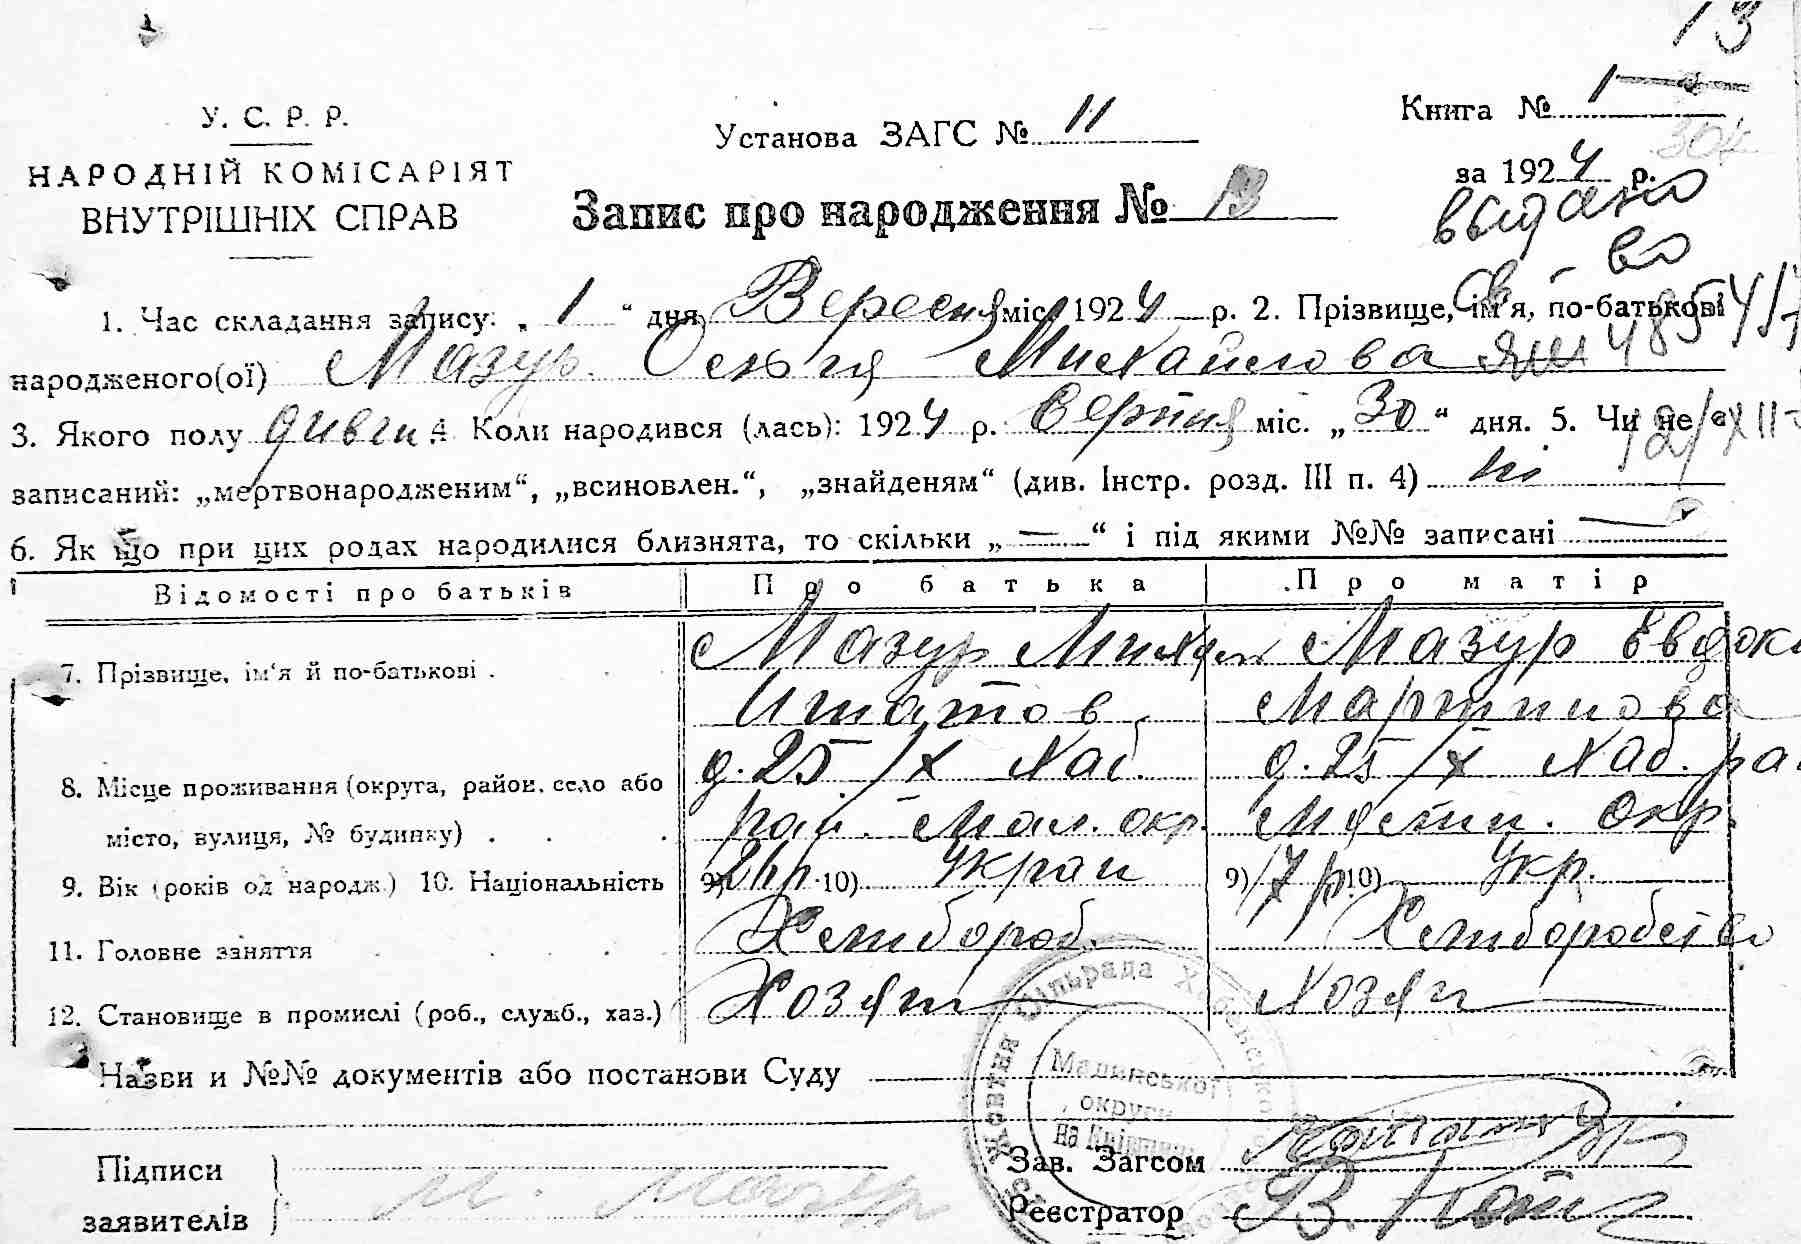 13
У. С. Р. Р.
НАРОДНІЙ КОМІСАРІЯТ
ВНУТРІШНІХ СПРАВ
Установа ЗАГС № 11
Книга № 1
за 1924 р.
Запис про народження № 13
выдано
св-во
1. Час складання запису: „ 1 “ дня Вересня міс. 1924 р. 2. Прізвище, ім'я, по-батькові
народженого(ої) Мазур Ольгя Михайлова
3. Якого полу дивчи 4. Коли народився (лась): 1924 р. Серпня міс. „ 30 “ дня. 5. Чи не є
записаний: „мертвонародженим“, „всиновлен.“, „знайденям“ (див. Інстр. розд. III п. 4) ні
6. Як що при цих родах народилися близнята, то скільки „ — “ і під якими №№ записані —
Відомості про батьків Про батька Про матір
7. Прізвище, ім'я й по-батькові . Мазур Михайл Мазур Евдок
Игнатов. Мартинова
8. Місце проживання (округа, район, село або д. 25 /X Хаб. д. 25 /X Хаб. ра
місто, вулиця, № будинку) . рай. Мал. окр. окр.
9. Вік (років од народж.) 10. Національність 9) 21 р. 10) Украи 9) 17 р. 10) Укр.
11. Головне заняття Хлибороб. Хлиборобство
12. Становище в промислі (роб., служб., хаз.) Хозяин Хозяи
Назви и №№ документів або постанови Суду
Сільрада
Малинської
округи
Підписи
заявителів М. Мазур
Зав. Загсом
Реєстратор В.